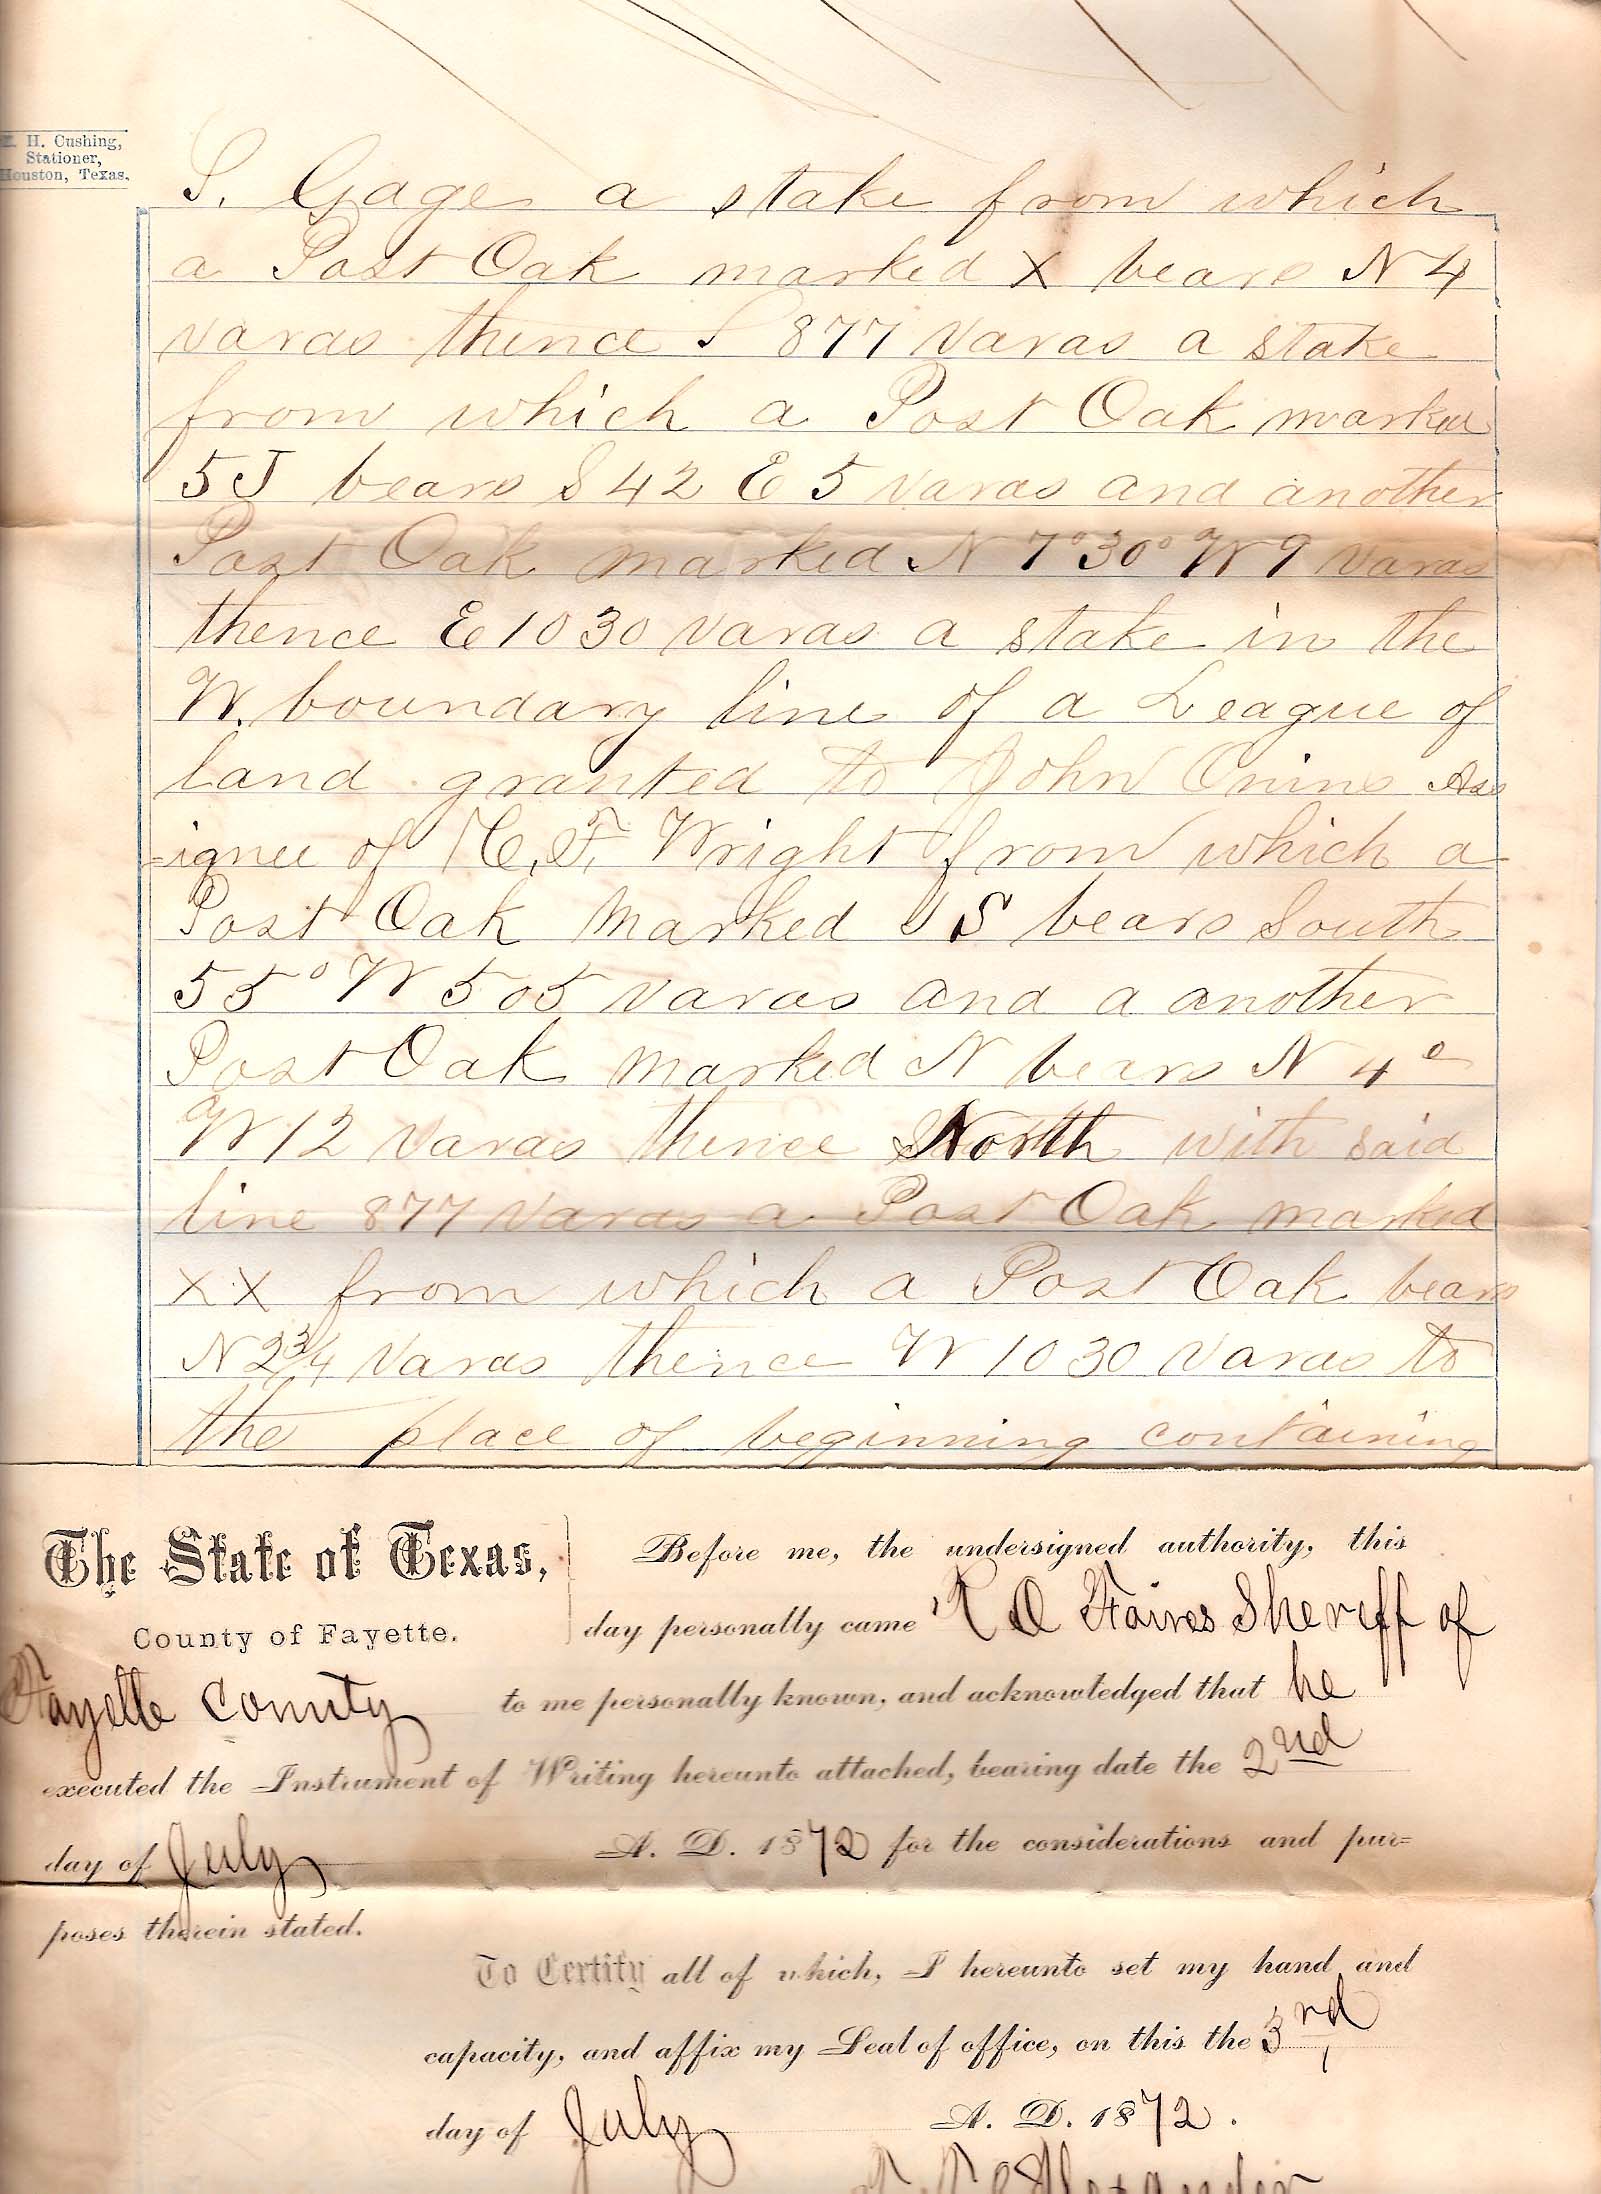 H. Cushing,
Stationer,
Houston, Texas.
S. Gage a stake from which
a Post Oak marked X bears N 4
varas thence S 877 varas a stake
from which a Post Oak marked
5 J bears S 42 E 5 varas and another
Post Oak marked N 7° 30° W 9 varas
thence E 1030 varas a stake in the
W. boundary line of a League of
land granted to John Ass
ignee of Wright from which a
Post Oak marked J S bears South
55° W 505 varas and a another
Post Oak marked N bears N 4°
W 12 varas thence North with said
line 877 varas a Post Oak marked
XX from which a Post Oak bears
N 2 3/4 varas thence W 1030 varas to
the place of beginning containing
The State of Texas,
County of Fayette.
Before me, the undersigned authority, this
day personally came R O Faires Sheriff of
Fayette County to me personally known, and acknowledged that he
executed the Instrument of Writing hereunto attached, bearing date the 2nd
day of July A. D. 1872 for the considerations and pur=
poses therein stated.
To Certify all of which, I hereunto set my hand and
capacity, and affix my Seal of office, on this the 3rd
day of July A. D. 1872.